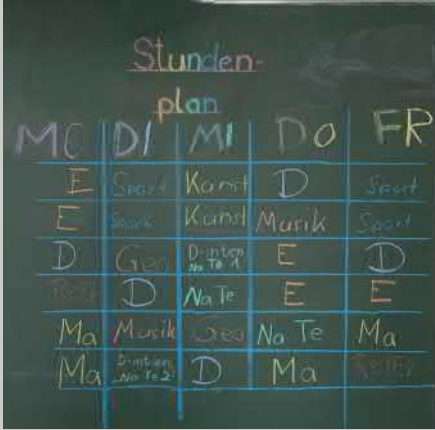 Stunden-
plan
MO DI MI DO FR
E Sport Kunst D Sport
E Sport Kunst Musik Sport
D Geo D-inten NaTe 1 E D
D NaTe E E
Ma Musik Geo NaTe Ma
Ma D-inten NaTe 2 D Ma